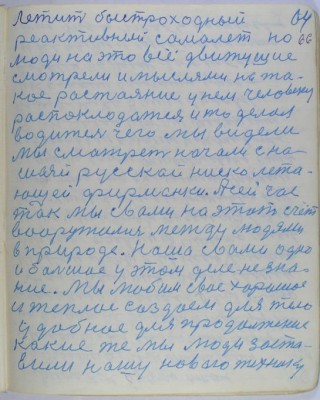 летит быстроходный 04
реактивный самалет по 66
люди на это всё движущие
смотрели и мыслями на та-
кое растаяние у нем человеку
распокладатся, и то делал
водител чего мы видели
мы смотрет начали с на-
шай русской ниско лета-
ющей фирманки. А сей час
так мы с вами на этот счёт
вооружилис между людями
в природе. Наша с вами одно
и балшое у этом деле незна-
ние. Мы любим свое харошое
и теплое создаем для тело
удобное для продалжение
какие же мы люди заста-
вили нашу новаго технику